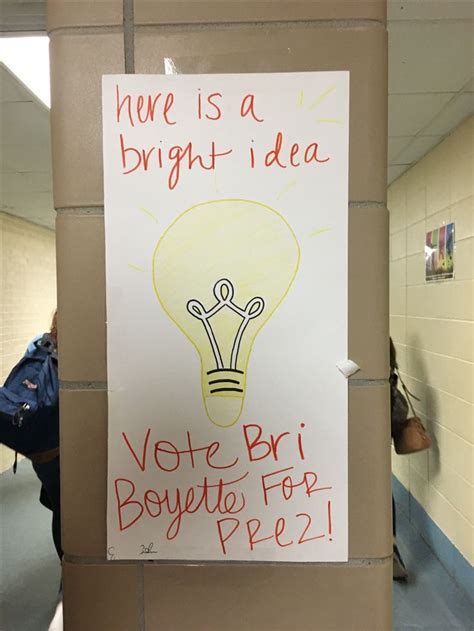 here is a
bright idea
Vote Bri
Boyette FOR
PREZ!